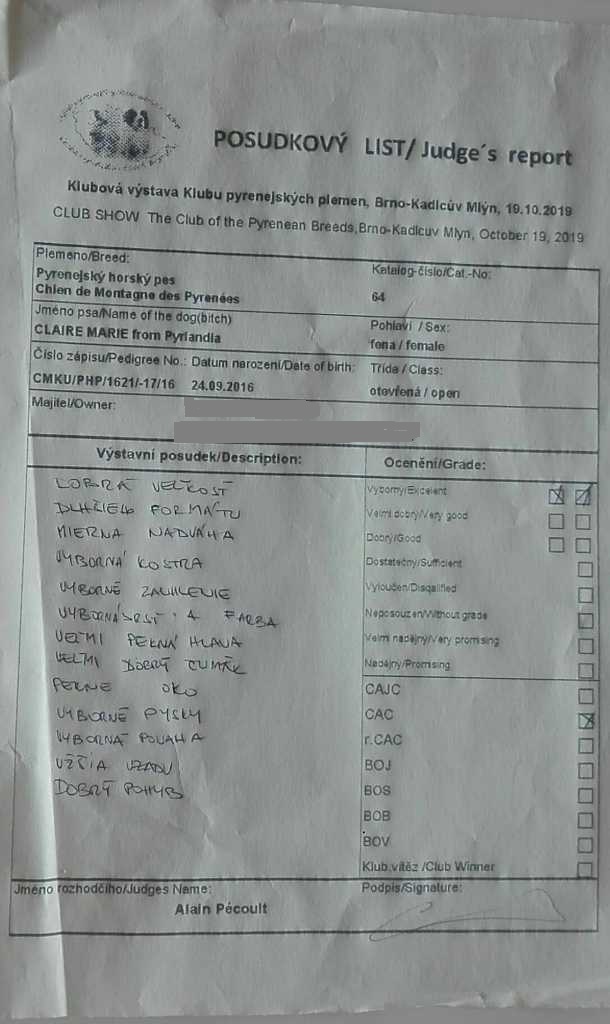 POSUDKOVÝ LIST/ Judge´s report
Klubová výstava Klubu pyrenejských plemen, Brno-Kadlcův Mlýn, 19.10.2019
CLUB SHOW The Club of the Pyrenean Breeds,Brno-Kadlcuv Mlyn, October 19, 2019
Plemeno/Breed:
Pyrenejský horský pes
Chien de Montagne des Pyrenées
Katalog-číslo/Cat.-No:
64
Jméno psa/Name of the dog(bitch)
CLAIRE MARIE from Pyrlandia
Pohlaví / Sex:
fena / female
Číslo zápisu/Pedigree No.: Datum narození/Date of birth:
CMKU/PHP/1621/-17/16 24.09.2016
Třída / Class:
otevřená / open
Majitel/Owner:
Výstavní posudek/Description:
DOBRÁ VEĽKOSŤ
DLHŠIEHO FORMÁTU
MIERNA NADVÁHA
VÝBORNÁ KOSTRA
VÝBORNÉ ZAUHLENIE
VÝBORNÁ SRSŤ A FARBA
VEĽMI PEKNÁ HLAVA
VEĽMI DOBRÝ ČUMÁK
PEKNÉ OKO
VÝBORNÉ PYSKY
VÝBORNÁ POVAHA
UŽŠIA VZADU
DOBRÝ POHYB
Ocenění/Grade:
Výborný/Excelent
Velmi dobrý/Very good
Dobrý/Good
Dostatečný/Sufficient
Vyloučen/Disqalified
Neposouzen/Without grade
Velmi nadějný/Very promising
Nadějný/Promising
CAJC
CAC
r.CAC
BOJ
BOS
BOB
BOV
Klub.vítěz /Club Winner
Jméno rozhodčího/Judges Name:
Alain Pécoult
Podpis/Signature: